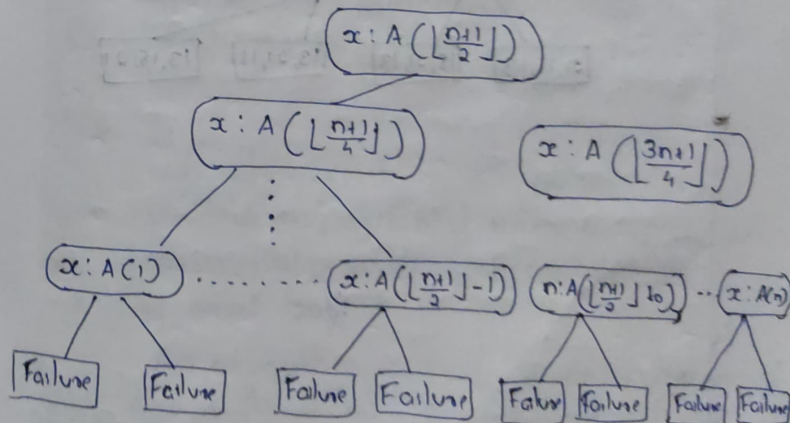 x : A (⌊n+1/2⌋)
x : A (⌊n+1/4⌋)
x : A (⌊3n+1/4⌋)
x : A (1)
x : A (⌊n+1/2⌋ - 1)
n : A (⌊n+1/2⌋
x : A(n)
Failure
Failure
Failure
Failure
Failure
Failure
Failure
Failure